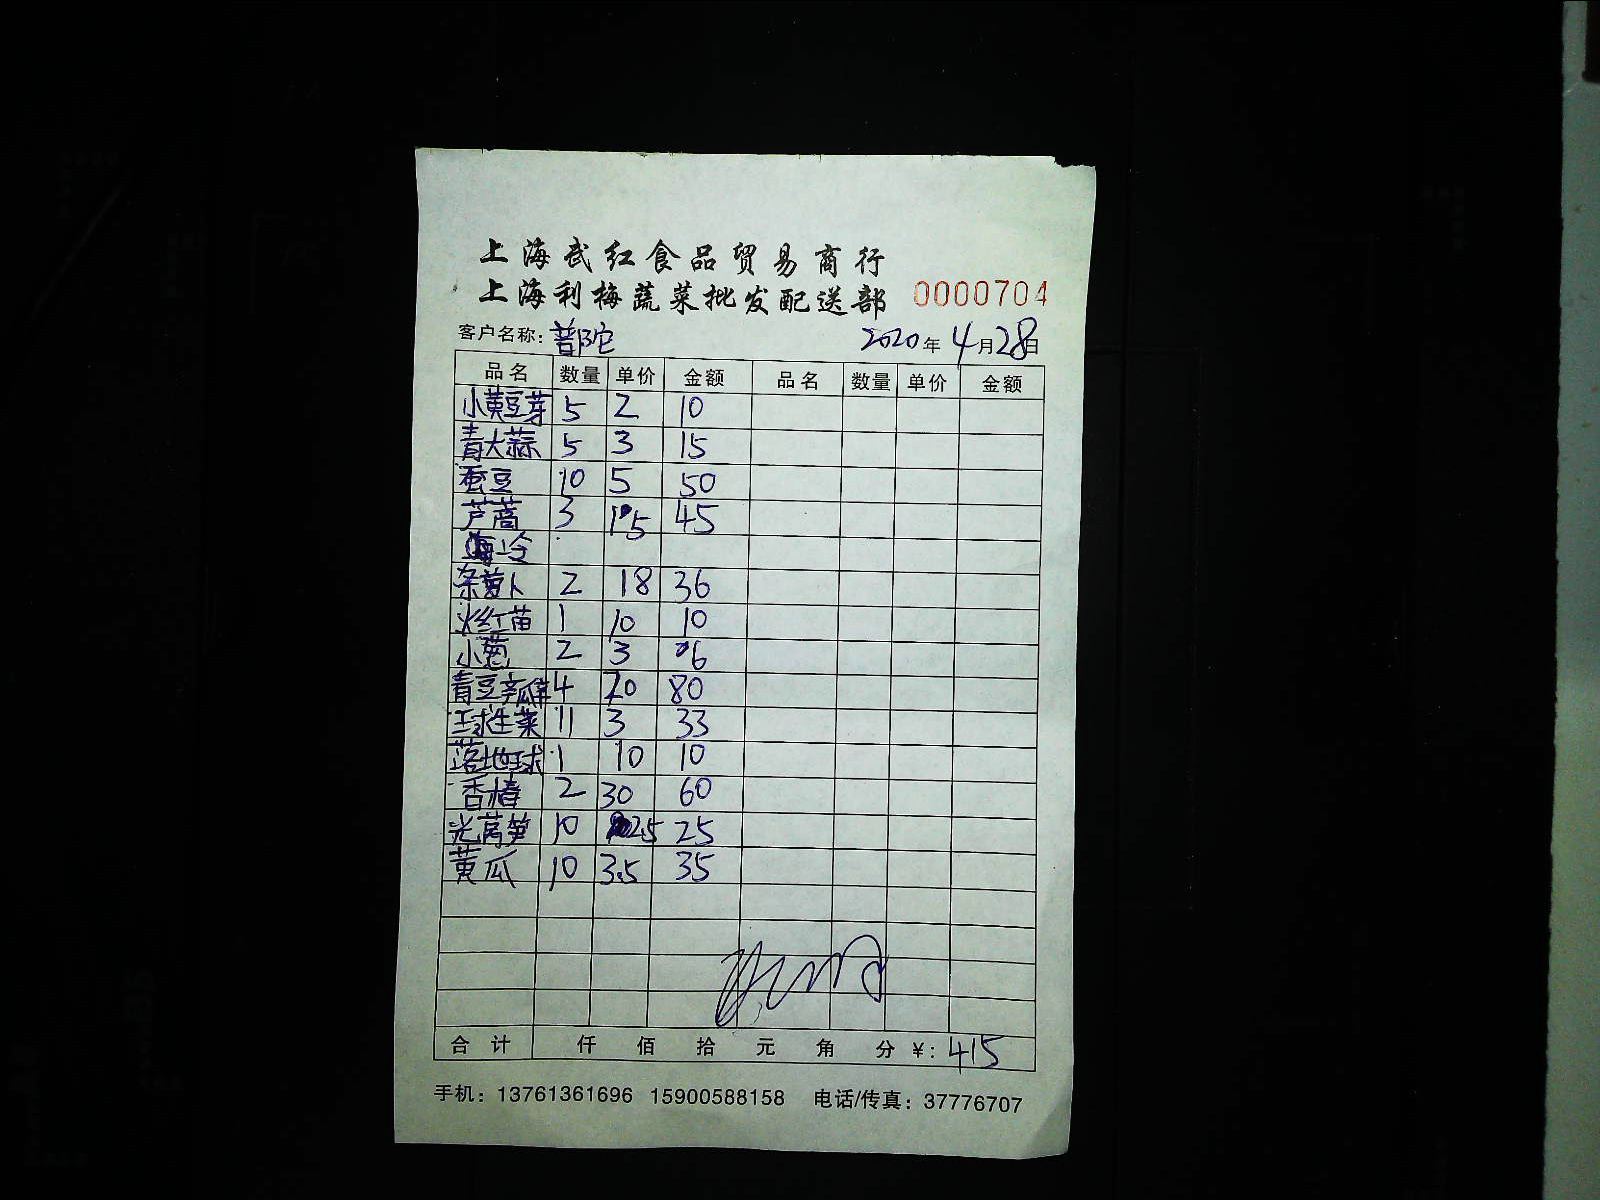 上海武红食品贸易商行
上海利梅蔬菜批发配送部 0000704
客户名称：普陀 2020年4月28日
品名 数量 单价 金额 品名 数量 单价 金额
小黄豆芽 5 2 10
青大蒜 5 3 15
蚕豆 10 5 50
芦蒿 3 15 45
条萝卜 2 18 36
火红苗 1 10 10
小葱 2 3 6
青豆 4 20 80
球生菜 11 3 33
落地球 1 10 10
香椿 2 30 60
光莴笋 10 2.5 25
黄瓜 10 3.5 35
合计 仟 佰 拾 元 角 分 ¥：415
手机：13761361696 15900588158 电话/传真：37776707